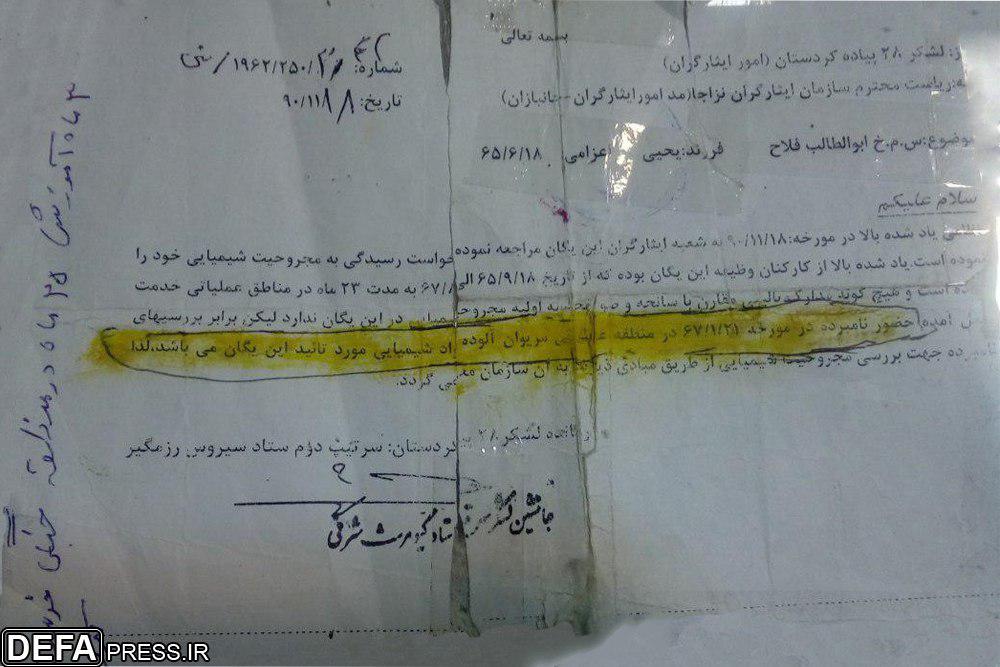 بسمه تعالی
از: لشکر ۲۸ پیاده کردستان (امور ایثارگران)
به: ریاست محترم سازمان ایثارگران نزاجا(مد امورایثارگران -جانبازان)
شماره: ۱۹۶۲/۲۵۰/
تاریخ: ۹۰/۱۱/
موضوع: س.م.خ ابوالطالب فلاح فرزند:یحیی اعزامی ۶۵/۶/۱۸
سلام علیکم
یاد شده بالا در مورخه: ۹۰/۱۱/۱۸ به شعبه ایثارگران این یگان مراجعه نموده خواست رسیدگی به مجروحیت شیمیایی خود را
نموده است.یاد شده بالا از کارکنان وظیفه این یگان بوده که از تاریخ ۶۵/۹/۱۸ الی ۶۷/۸ به مدت ۲۳ ماه در مناطق عملیاتی خدمت
است و هیچ گونه مدارک بالینی مقارن با سانحه و اولیه در این یگان ندارد لیکن برابر بررسیهای
آمده حضور نامبرده در مورخه ۶۷/۱/۲۱ در منطقه مریوان آلوده شیمیایی مورد تائید این یگان می باشد.لذا
جهت بررسی مجروحیت شیمیایی از طریق مبادی به آن سازمان می گردد.
لشکر ۲۸ کردستان: سرتیپ دوم ستاد سیروس رزمگیر
جانشین لشکر ستاد کیومرث شرفی
۳ ماه آموزش ۲۵ ماه در منطقه جنگی
DEFAPRESS.IR